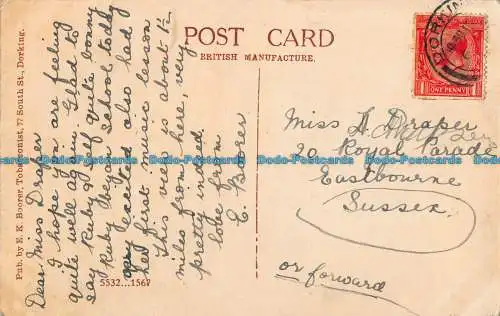 POST CARD
BRITISH MANUFACTURE.
Pub. by E. K. Boorer, Tobacconist, 77 South St., Dorking.
Dear Miss Draper
I hope you are feeling
quite well again. Glad to
say Ruby & self quite bonny
Ruby began School today
very excited also had
her first music lesson
This view is about 1½
miles from here, very
pretty indeed.
love from
E. Boorer
5532...1567
DORKING
ONE PENNY
Miss A Draper
20 Royal Parade
Eastbourne
Sussex
or forward
Dodo-Postcards Dodo-Postcards Dodo-Postcards Dodo-Postcards Dodo-Postcards